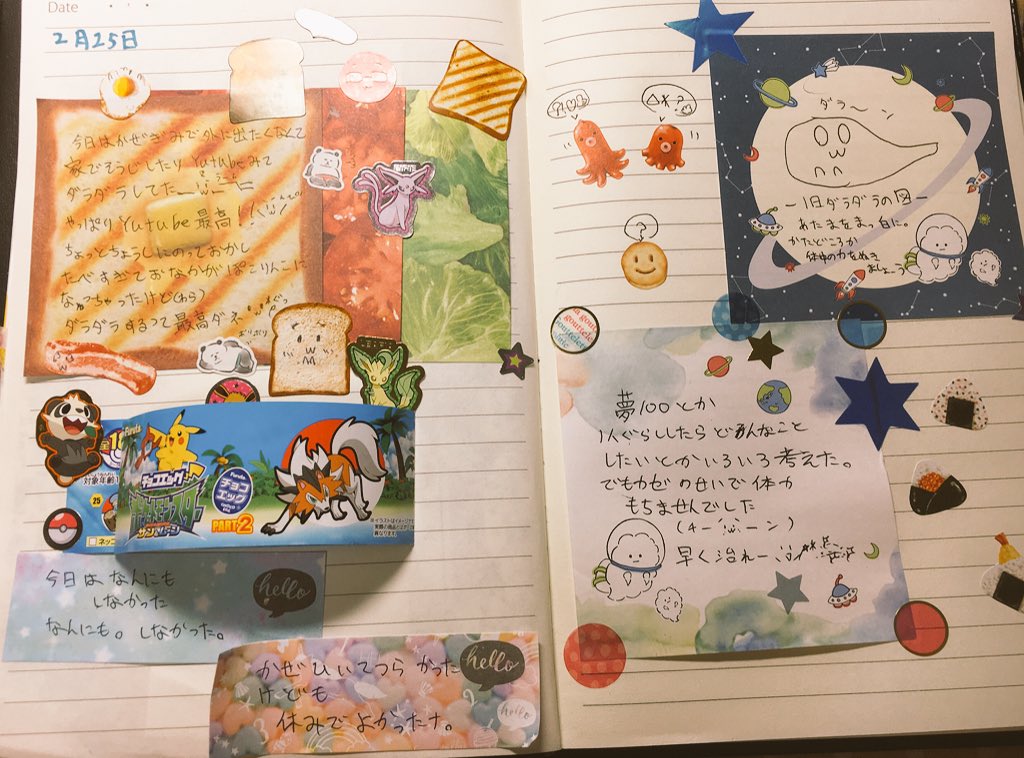 Date
2月25日
今日はかぜぎみで外に出たくなくて
家でそうじしたりYutubeみて
ダラダラしてた
やっぱりYutube最高!
ちょっとちょうしにのっておかし
たべすぎておなかがぽこりんこに
なっちゃったけど(わら)
ダラダラするって最高ダネ
チョコエッグ
ポケットモンスター
サン&ムーン
PART-2
Furuta
チョコ
エッグ
対象年齢
25
※イラストはイメージで
実際の商品とは
異なります。
今日は、なんにも
しなかった
なんにも。しなかった。
hello
かぜひいてつらかった
けども
休みでよかったナ。
hello
hello
?
ダラ〜
ー1日ダラダラの図ー
あたまをまっ白に。
かたどころか
体中の力をぬき
ましょーう
夢100とか
1人ぐらししたらどんなこと
したいとかいろいろ考えた。
でもカゼのせいで体力
もちませんでした
早く治れー